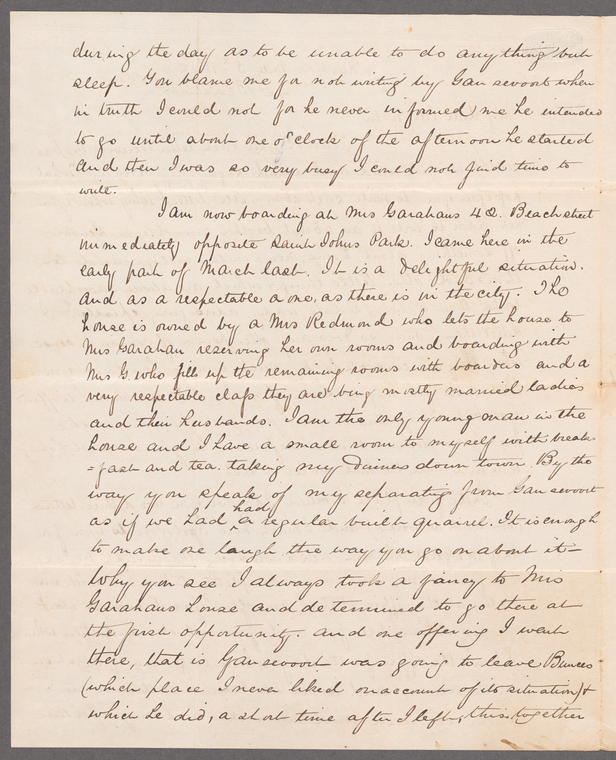 during the day as to be unable to do any thing but
sleep. You blame me for not writing by Gansevoort when
in truth I could not for he never informed me he intended
to go until about one o'clock of the afternoon he started
and then I was so very busy I could not find time to
write.
I am now boarding at Mrs Garahans 42. Beach street
immediately opposite Saint Johns Park. I came here in the
early part of March last. It is a delightful situation.
and as a respectable a one, as there is in the city. The
house is owned by a Mrs Redmond who lets the house to
Mrs Garahan reserving her own rooms and boarding with
Mrs G. who fills up the remaining rooms with boarders and a
very respectable class they are being mostly married ladies
and their husbands. I am the only young man in the
house and I have a small room to myself with break
=fast and tea. taking my dinners down town. By the
way you speak of my separating from Gansevoort
as if we had had a regular built quarrel. It is enough
to make one laugh the way you go on about it—
Why you see I always took a fancy to Mrs
Garahans house and determined to go there at
the first opportunity. and one offering I went
there, that is Gansevoort was going to leave Bunces
(which place I never liked on account of its situation) &
which he did, a short time after I left, this together